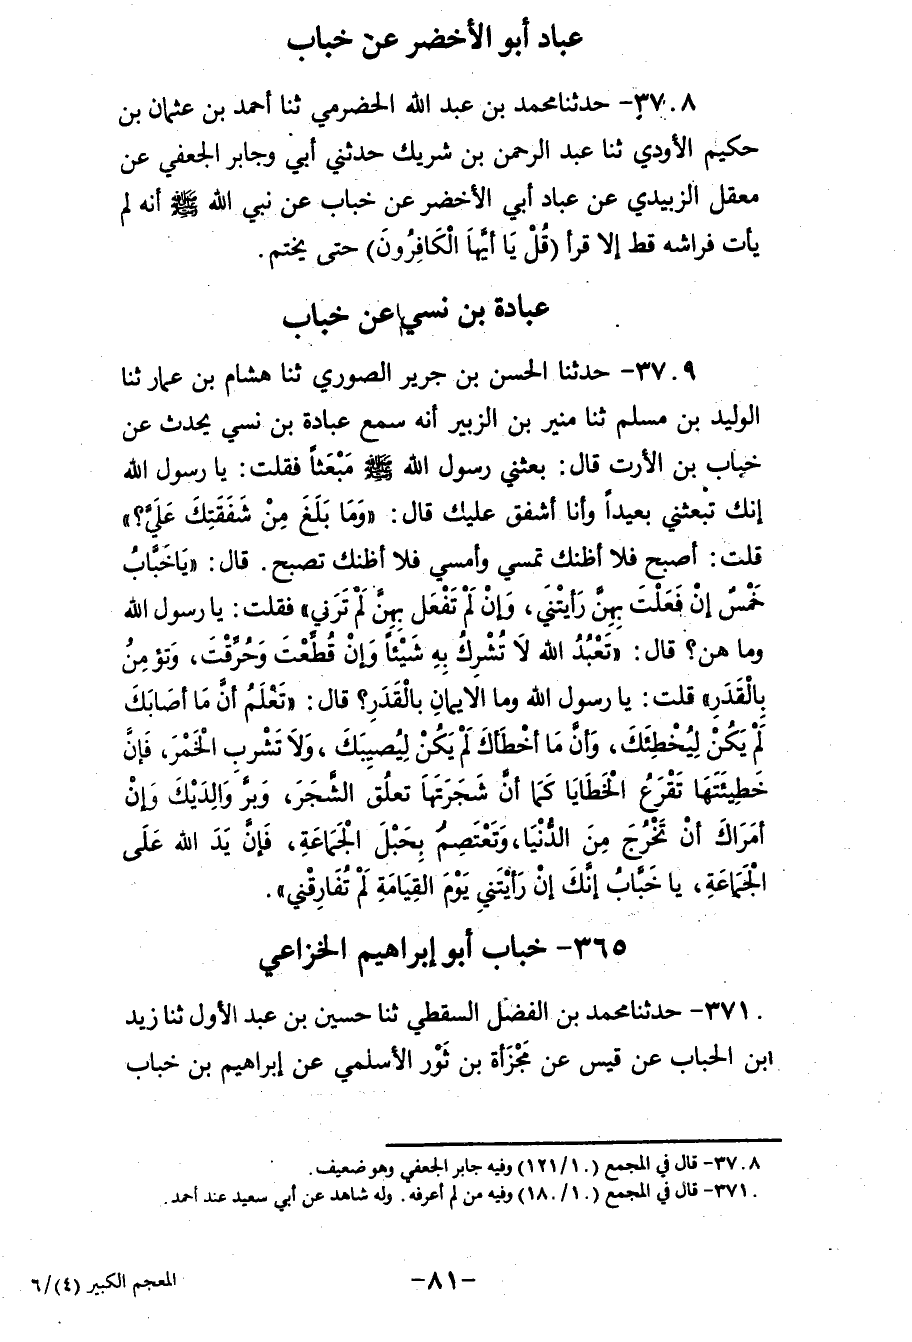 عباد أبو الأخضر عن خباب
٣٧٠٨- حدثنا محمد بن عبد الله الحضرمي ثنا أحمد بن عثمان بن
حكيم الأودي ثنا عبد الرحمن بن شريك حدثني أبي وجابر الجعفي عن
معقل الزبيدي عن عباد أبي الأخضر عن خباب عن نبي الله ﷺ أنه لم
يأت فراشه قط إلا قرأ (قُلْ يَا أَيُّهَا الْكَافِرُونَ) حتى يختم.
عبادة بن نسي عن خباب
٣٧٠٩- حدثنا الحسن بن جرير الصوري ثنا هشام بن عمار ثنا
الوليد بن مسلم ثنا منير بن الزبير أنه سمع عبادة بن نسي يحدث عن
خباب بن الأرت قال: بعثني رسول الله ﷺ مَبْعَثاً فقلت: يا رسول الله
إنك تبعثني بعيداً وأنا أشفق عليك قال: «وَمَا بَلَغَ مِنْ شَفَقَتِكَ عَلَيَّ؟»
قلت: أصبح فلا أظنك تمسي وأمسي فلا أظنك تصبح. قال: «يَاخَبَّابُ
خَمْسٌ إنْ فَعَلْتَ بِهِنَّ رَأيْتَنِي، وَإنْ لَمْ تَفْعَل بِهِنَّ لَمْ تَرَنِي» فقلت: يا رسول الله
وما هن؟ قال: «تَعْبُدُ الله لَا تُشْرِكُ بِهِ شَيْئاً وَإنْ قُطِّعْتَ وَحُرِّقْتَ، وَتؤمِنُ
بِالْقَدَرِ» قلت: يا رسول الله وما الايمان بالْقَدَرِ؟ قال: «تَعْلَمُ أنَّ مَا أصَابَكَ
لَمْ يَكُنْ لِيُخْطِئَكَ، وَأنَّ مَا أخْطَأكَ لَمْ يَكُنْ لِيُصِيبَكَ، وَلَا تَشْرَبِ الْخَمْرَ، فَإنَّ
خَطِيئَتَهَا تَفْرَعُ الْخَطَايَا كَمَا أنَّ شَجَرَتَهَا تعلُق الشَّجَرَ، وَبِرَّ وَالِدَيْكَ وَإنْ
أمَرَاكَ أنْ تَخْرُجَ مِنَ الدُّنْيَا، وَتَعْتَصِمُ بِحَبْلِ الْجَمَاعَةِ، فَإنَّ يَدَ الله عَلَى
الْجَمَاعَةِ، يا خَبَّابُ إنَّكَ إنْ رَأيْتَنِي يَوْمَ القِيَامَةِ لَمْ تُفَارِقْنِي».
٣٦٥- خباب أبو إبراهيم الخزاعي
٣٧١٠- حدثنا محمد بن الفضل السقطي ثنا حسين بن عبد الأول ثنا زيد
ابن الحباب عن قيس عن مَجْزَأة بن ثَوْر الأسلمي عن إبراهيم بن خباب
٣٧٠٨- قال في المجمع (١٢١/١٠) وفيه جابر الجعفي وهو ضعيف.
٣٧١٠- قال في المجمع (١٨٠/١٠) وفيه من لم أعرفه. وله شاهد عن أبي سعيد عند أحمد.
-٨١-
المعجم الكبير (٤)/٦